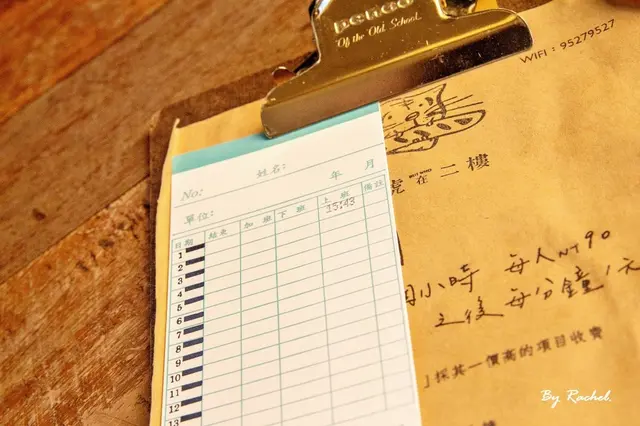 penco
"Of the Old School"
WIFI : 95279527
虎在二樓
姓名:
No:
年 月
單位:
日期 結束 加班 下班 上班 備註
15:43
1
2
3
4
5
6
7
8
9
10
11
12
13
小時 每人NT90
之後 每分鐘1元
」採其一價高的項目收費
By Rachel.